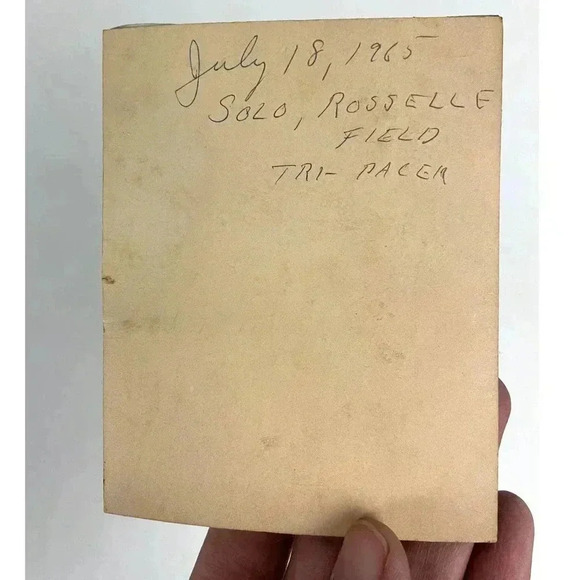 July 18, 1965
SOLO, ROSSELLE
FIELD
TRI- PACER